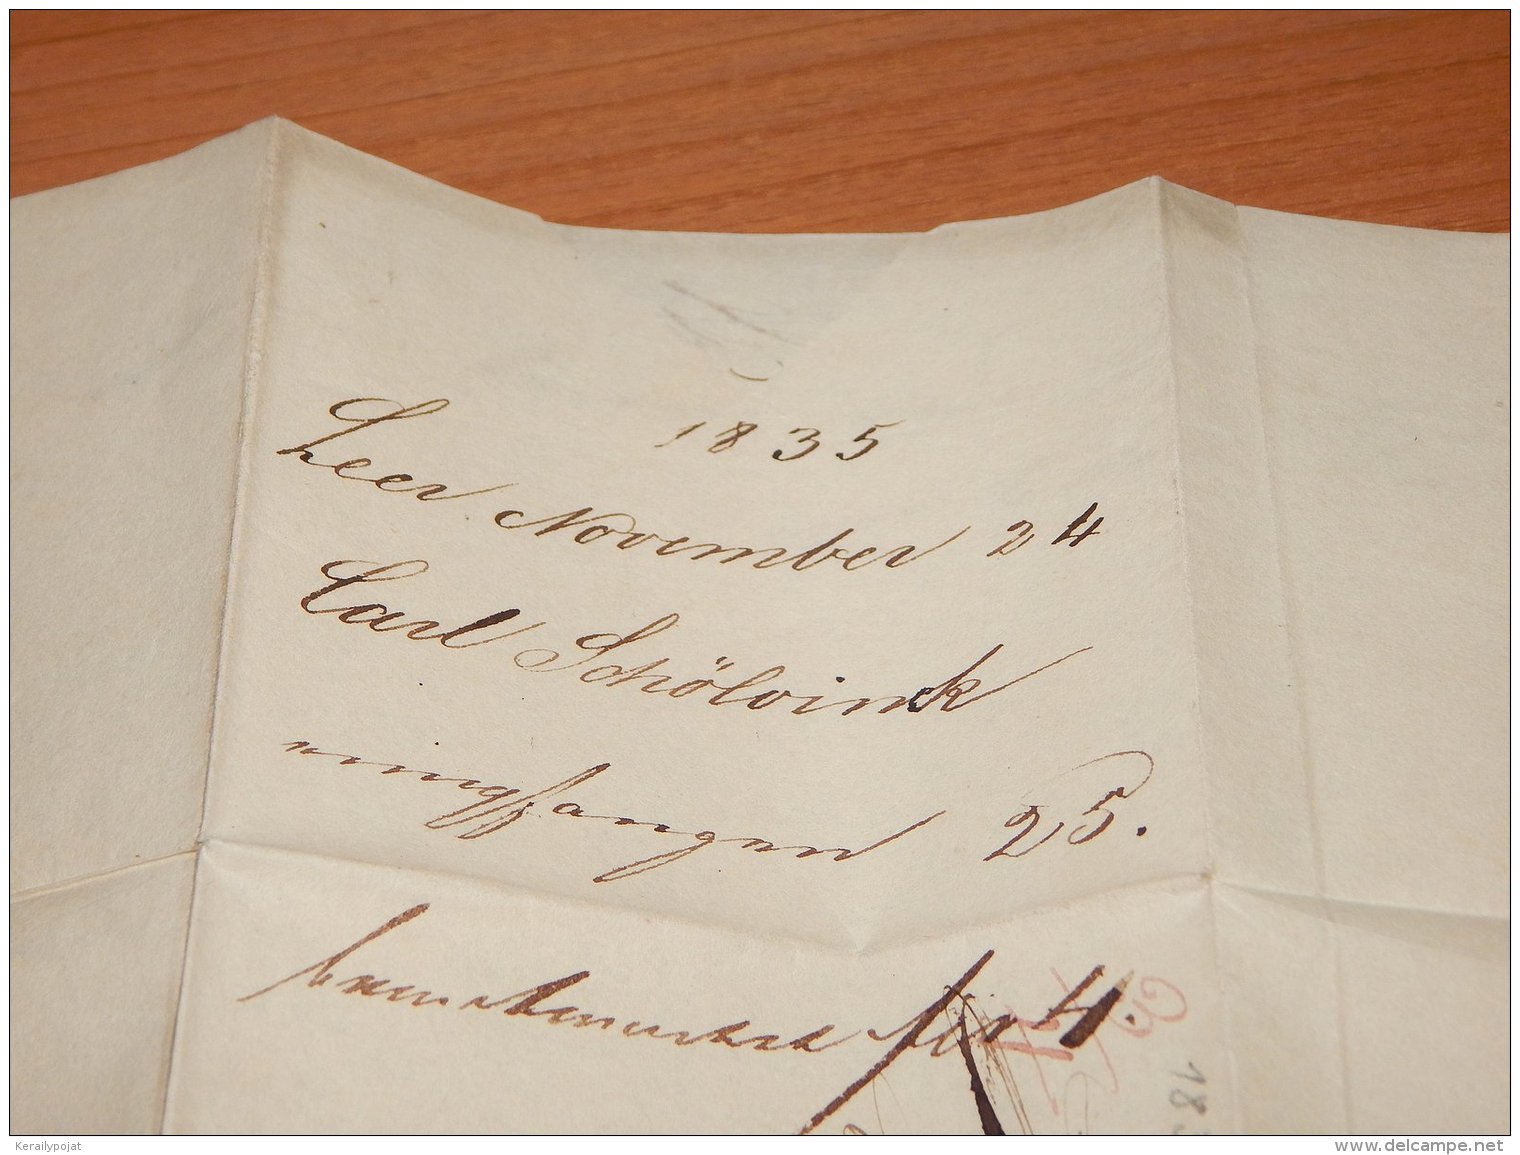 1835
Leer November 24
Carl Schölvinck
empfangen 25.
beantwortet
18
Kerailypojat
www.delcampe.net